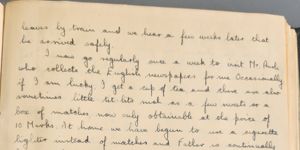 leaves by train and we hear a few weeks later that
he arrived safely.
I now go regularly once a week to visit Mr.
who collects the English newspapers for me. Occasionally
if I am lucky I get a cup of tea and there are also
sometimes little tit-bits such as a few sweets or a
box of matches, now only obtainable at the price of
10 Marks. At home we have begun to use a cigarette
lighter instead of matches and Father is continually